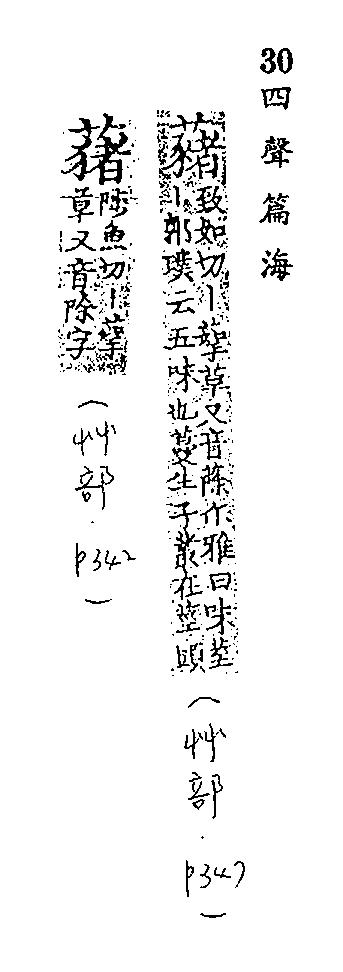 30四聲篇海
藸致如切丨蒘草又音除尒雅曰味荎
丨郭璞云五味也蔓生子叢在莖頭
(艸部.p347)
藸陟魚切丨蒘
草又音除字
(艸部.p342)